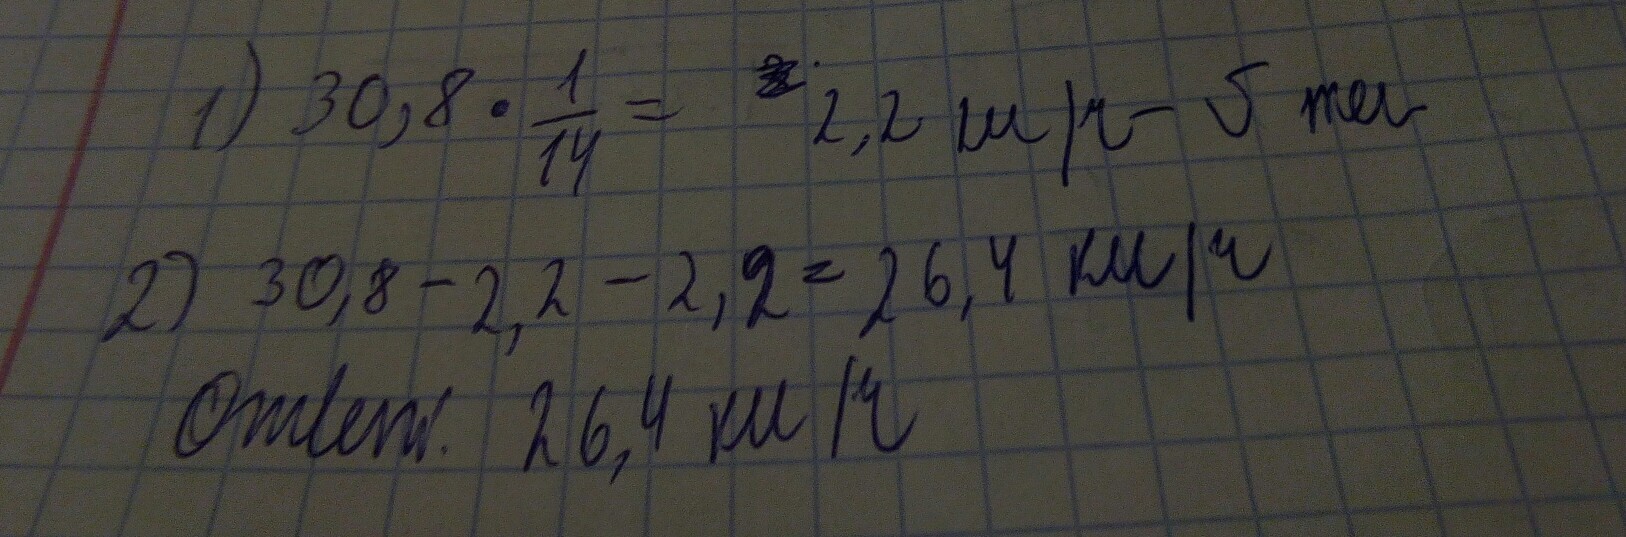 1) 30,8 · 1/14 = 2,2 км/ч - υ теч
2) 30,8 - 2,2 - 2,2 = 26,4 км/ч
Ответ: 26,4 км/ч